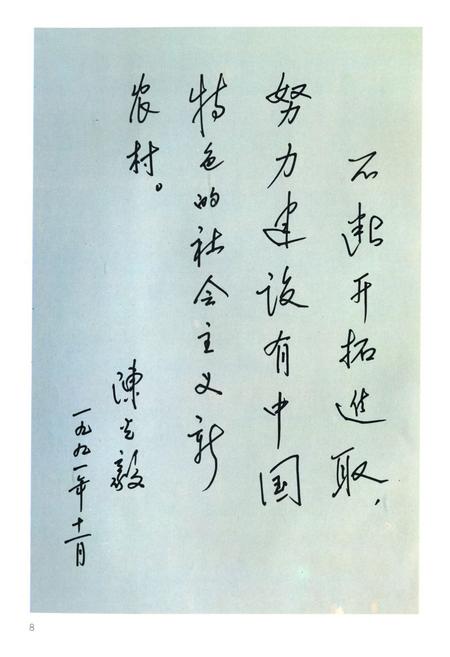 不断开拓进取，
努力建设有中国
特色的社会主义新
农村。
陈光毅
一九九一年十一月
8